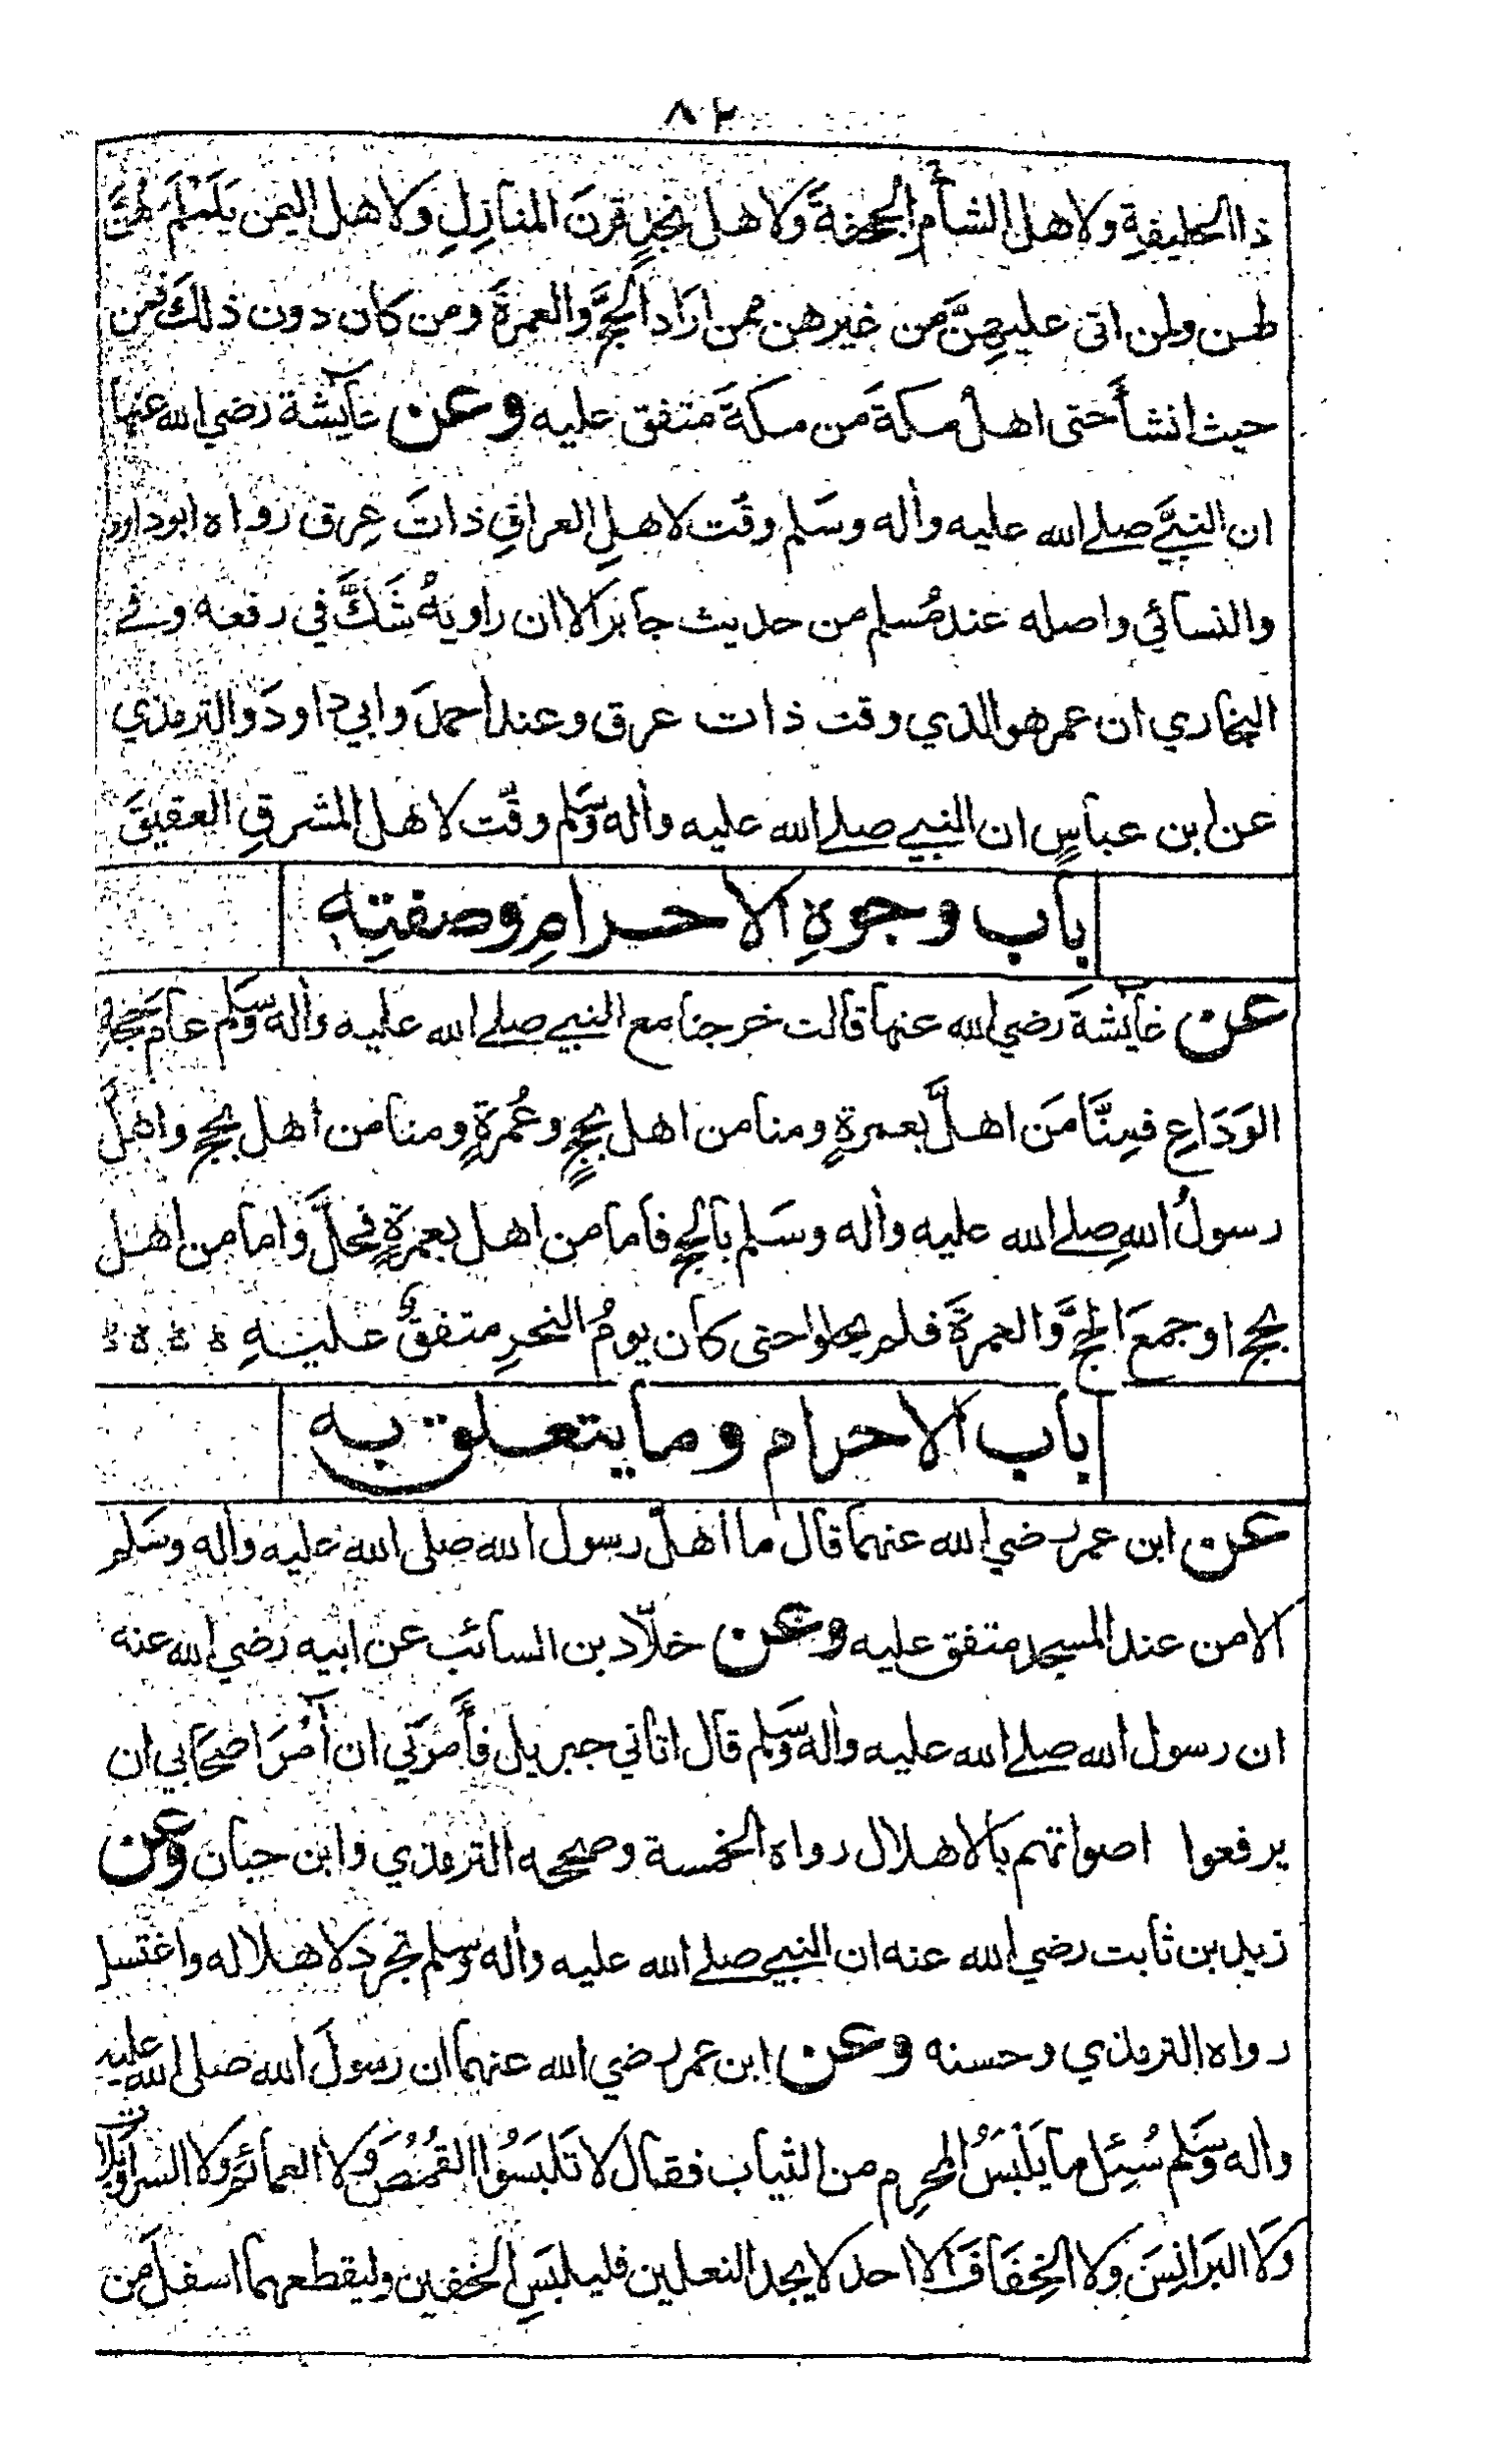 ٨٢
ذا الحليفةِ ولاهل الشأم الجحفةَ ولاهل نجدٍ قرنَ المنازلِ ولاهل اليمن يَلَمْلَمَ هُنَّ
لهن ولمن اتى عليهِنَّ من غيرهن ممن ارَاد الحجَّ والعمرةَ ومن كان دون ذلكَ فمن
حيث انشأَ حتى اهلُ مكةَ من مكةَ متفق عليه وعن عآئشة رضي الله عنها
ان النبيَّ صلے الله عليه واٰله وسَلم وقَّت لاهلِ العراقِ ذاتَ عِرق رواه ابوداود
والنسائي واصله عند مُسلم من حديث جابر الا ان راويهُ شَكَّ في رفعه وفے
البخاري ان عمر هو الذي وقت ذات عرق وعند احمدَ وابي داودَ والترمذي
عن ابن عباسٍ ان النبيے صلے الله عليه واٰله وسَلم وقّت لاهل المشرقِ العقيقَ
باب وجوهِ الاحرامِ وصفتِهِ
عن عآئشةَ رضي الله عنها قالت خرجنا مع النبيے صلے الله عليه واٰله وسَلم عامَ حجةِ
الوَدَاعِ فمِنَّا مَن اهلَّ بعمرةٍ ومنا من اهل بحجٍ وعُمرةٍ ومنا من اهل بحج واهلَّ
رسولُ اللهِ صلے الله عليه واٰله وسَلم بالحج فاما من اهل بعمرةٍ فحلَّ واما من اهل
بحج او جمعَ الحجَّ والعمرةَ فلم يحلوا حتى كان يومُ النحرِ متفقٌ عليهِ
باب الاحرام وما يتعلق به
عن ابن عمر رضي الله عنهما قال ما اهلّ رسول الله صلى الله عليه واٰله وسَلم
الا من عند المسجد متفق عليه وعن خلّاد بن السائب عن ابيه رضي الله عنه
ان رسول الله صلے الله عليه واٰله وسَلم قال اتاني جبريل فأَمرَني ان اٰمُرَ اصحَابي ان
يرفعوا اصواتهم بالاهلال رواه الخمسة وصححه الترمذي وابن حبان وعن
زيد بن ثابت رضي الله عنه ان النبيے صلے الله عليه واٰله وسلم تجرد لاهلاله واغتسل
رواه الترمذي وحسنه وعن ابن عمر رضي الله عنهما ان رسولَ الله صلى الله عليه
واٰله وسَلم سُئِل ما يَلْبَسُ المحرِم من الثياب فقال لا تَلبَسُوا القُمُصَ ولا العمائم ولا السراويلات
ولَا البرَانِسَ ولا الخِفَافَ الا احد لا يجد النعلين فليلبَسِ الخفين وليقطعهما اسفلَ من